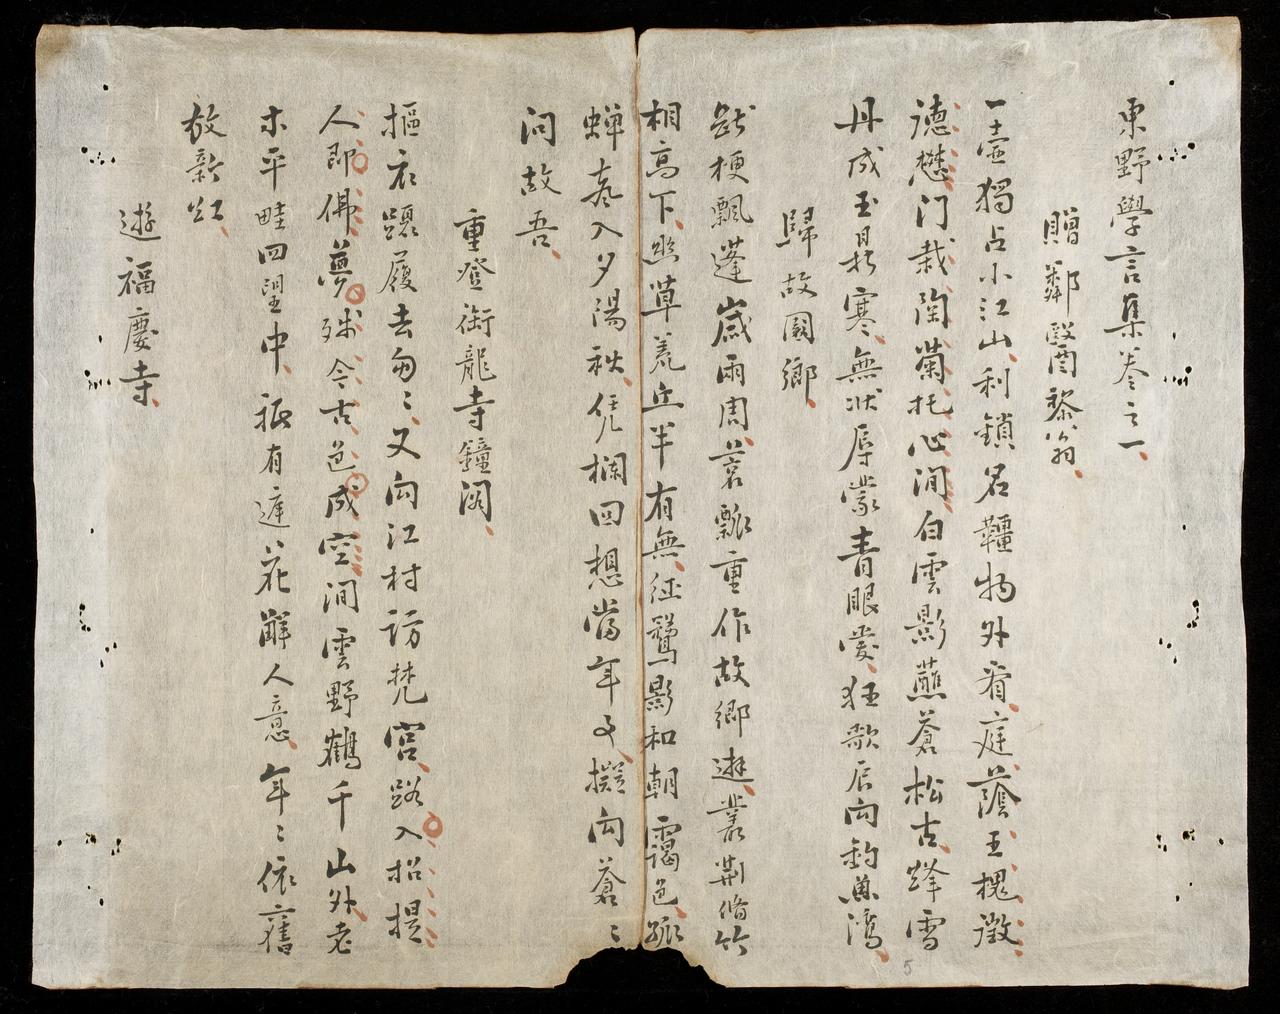 東野學言集卷之一
贈鄰醫黎翁
一壺獨占小江山利鎖名韁物外看庭蔭王槐徵
德懋門栽陶菊托心閒白雲影蘸蒼松古絳雪
丹成玉晷寒無狀辱蒙青眼愛狂歌辰向釣魚灣
歸故園鄉
跡梗飄蓬歲兩周菪瓢重作故鄉遊叢荆脩竹
相高下幽草荒丘半有無征鴛影和朝靄色孤
蟬聲入夕陽秋凭欄回想當年事擬向蒼〻
问故吾
重登銜龍寺鐘閣
摳衣躡履去匆〻又向江村訪梵宮路入招提
人即佛夢殘今古色成空閒雲野鶴千山外老
木平畦四望中祇有遲花觧人意年〻依舊
放新紅
遊福慶寺
5